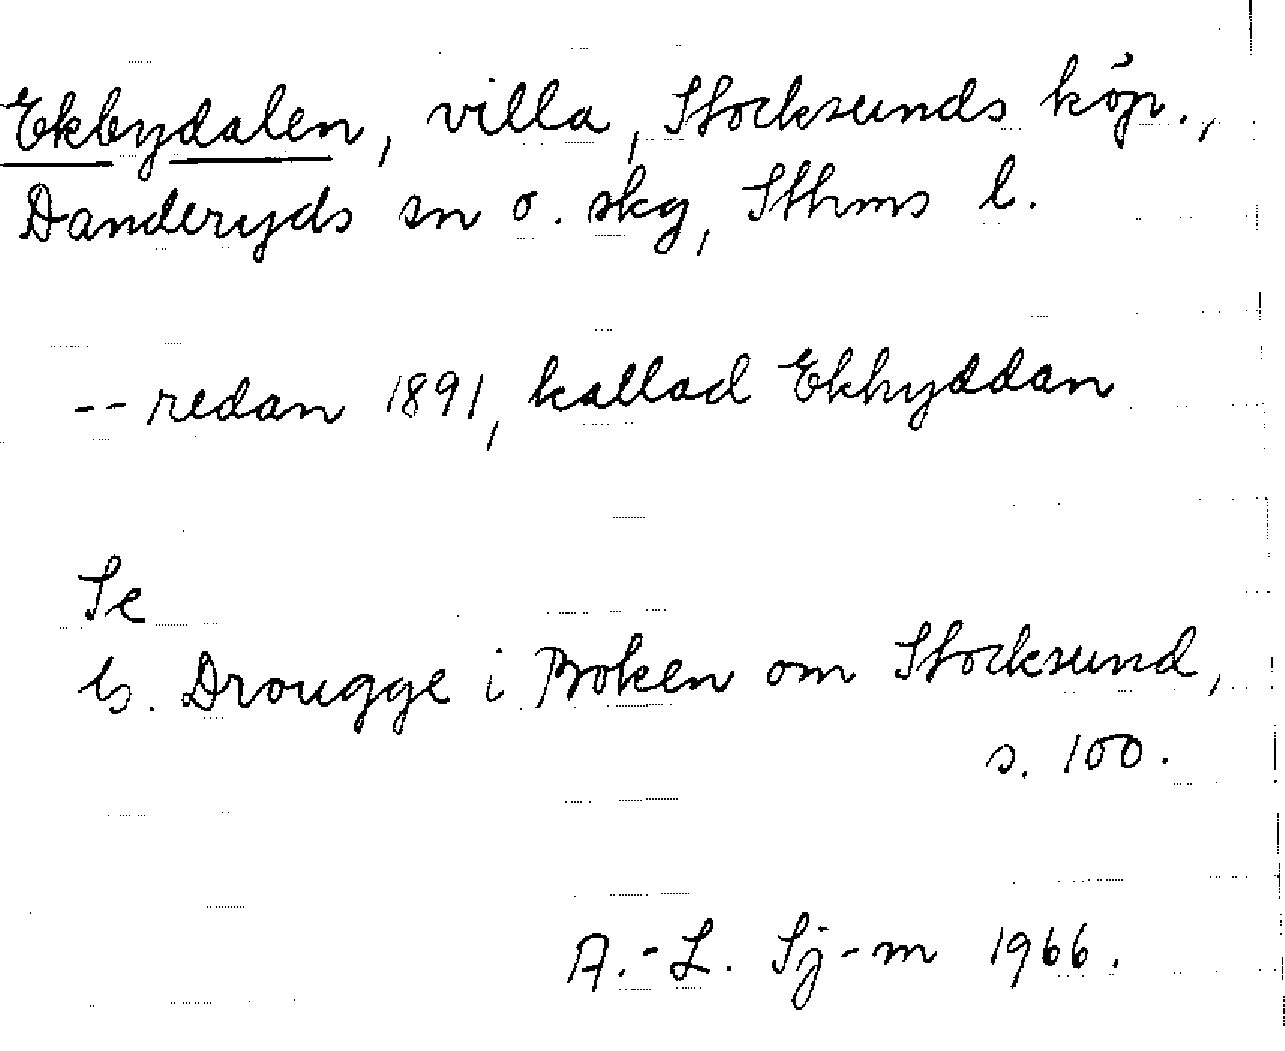 Ekbydalen, villa, Stocksunds köp.,
Danderyds sn o. skg, Sthms l.
-- redan 1891, kallad Ekhyddan
Se
G. Drougge i Boken om Stocksund,
s. 100.
A.-L. Sj-m 1966.